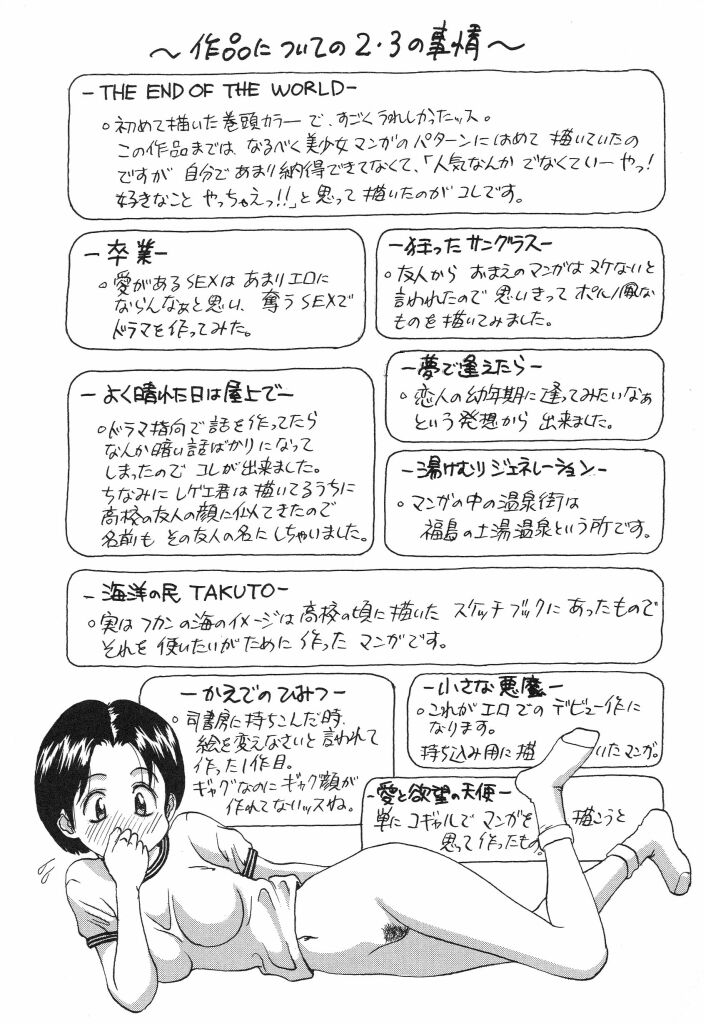 ～作品についての2・3の事情～
－THE END OF THE WORLD－
○初めて描いた巻頭カラーで、すごくうれしかったッス。
この作品までは、なるべく美少女マンガのパターンにはめて描いていたの
ですが自分であまり納得できてなくて、「人気なんかでなくていーやっ！
好きなことやっちゃえっ!!」と思って描いたのがコレです。
－卒業－
○愛があるSEXはあまりエロに
ならんなぁと思い、奪うSEXで
ドラマを作ってみた。
－狂ったサングラス－
○友人からおまえのマンガはヌケないと
言われたので思いきってポルノ風な
ものを描いてみました。
－夢で逢えたら－
○恋人の幼年期に逢ってみたいなぁ
という発想から出来ました。
－よく晴れた日は屋上で－
○ドラマ指向で話を作ってたら
なんか暗い話ばかりになって
しまったのでコレが出来ました。
ちなみにレゲエ君は描いてるうちに
高校の友人の顔に似てきたので
名前もその友人の名にしちゃいました。
－湯けむりジェネレーション－
○マンガの中の温泉街は
福島の土湯温泉という所です。
－海洋の民TAKUTO－
○実はフカンの海のイメージは高校の頃に描いたスケッチブックにあったもので
それを使いたいがために作ったマンガです。
－かえでのひみつ－
○司書房に持ちこんだ時、
絵を変えなさいと言われて
作った1作目。
ギャグなのにギャグ顔が
作れてないッスね。
－小さな悪魔－
○これがエロでのデビュー作に
なります。
持ち込み用に描いたマンガ。
－愛と欲望の天使－
単にコギャルでマンガを描こうと
思って作ったもの。